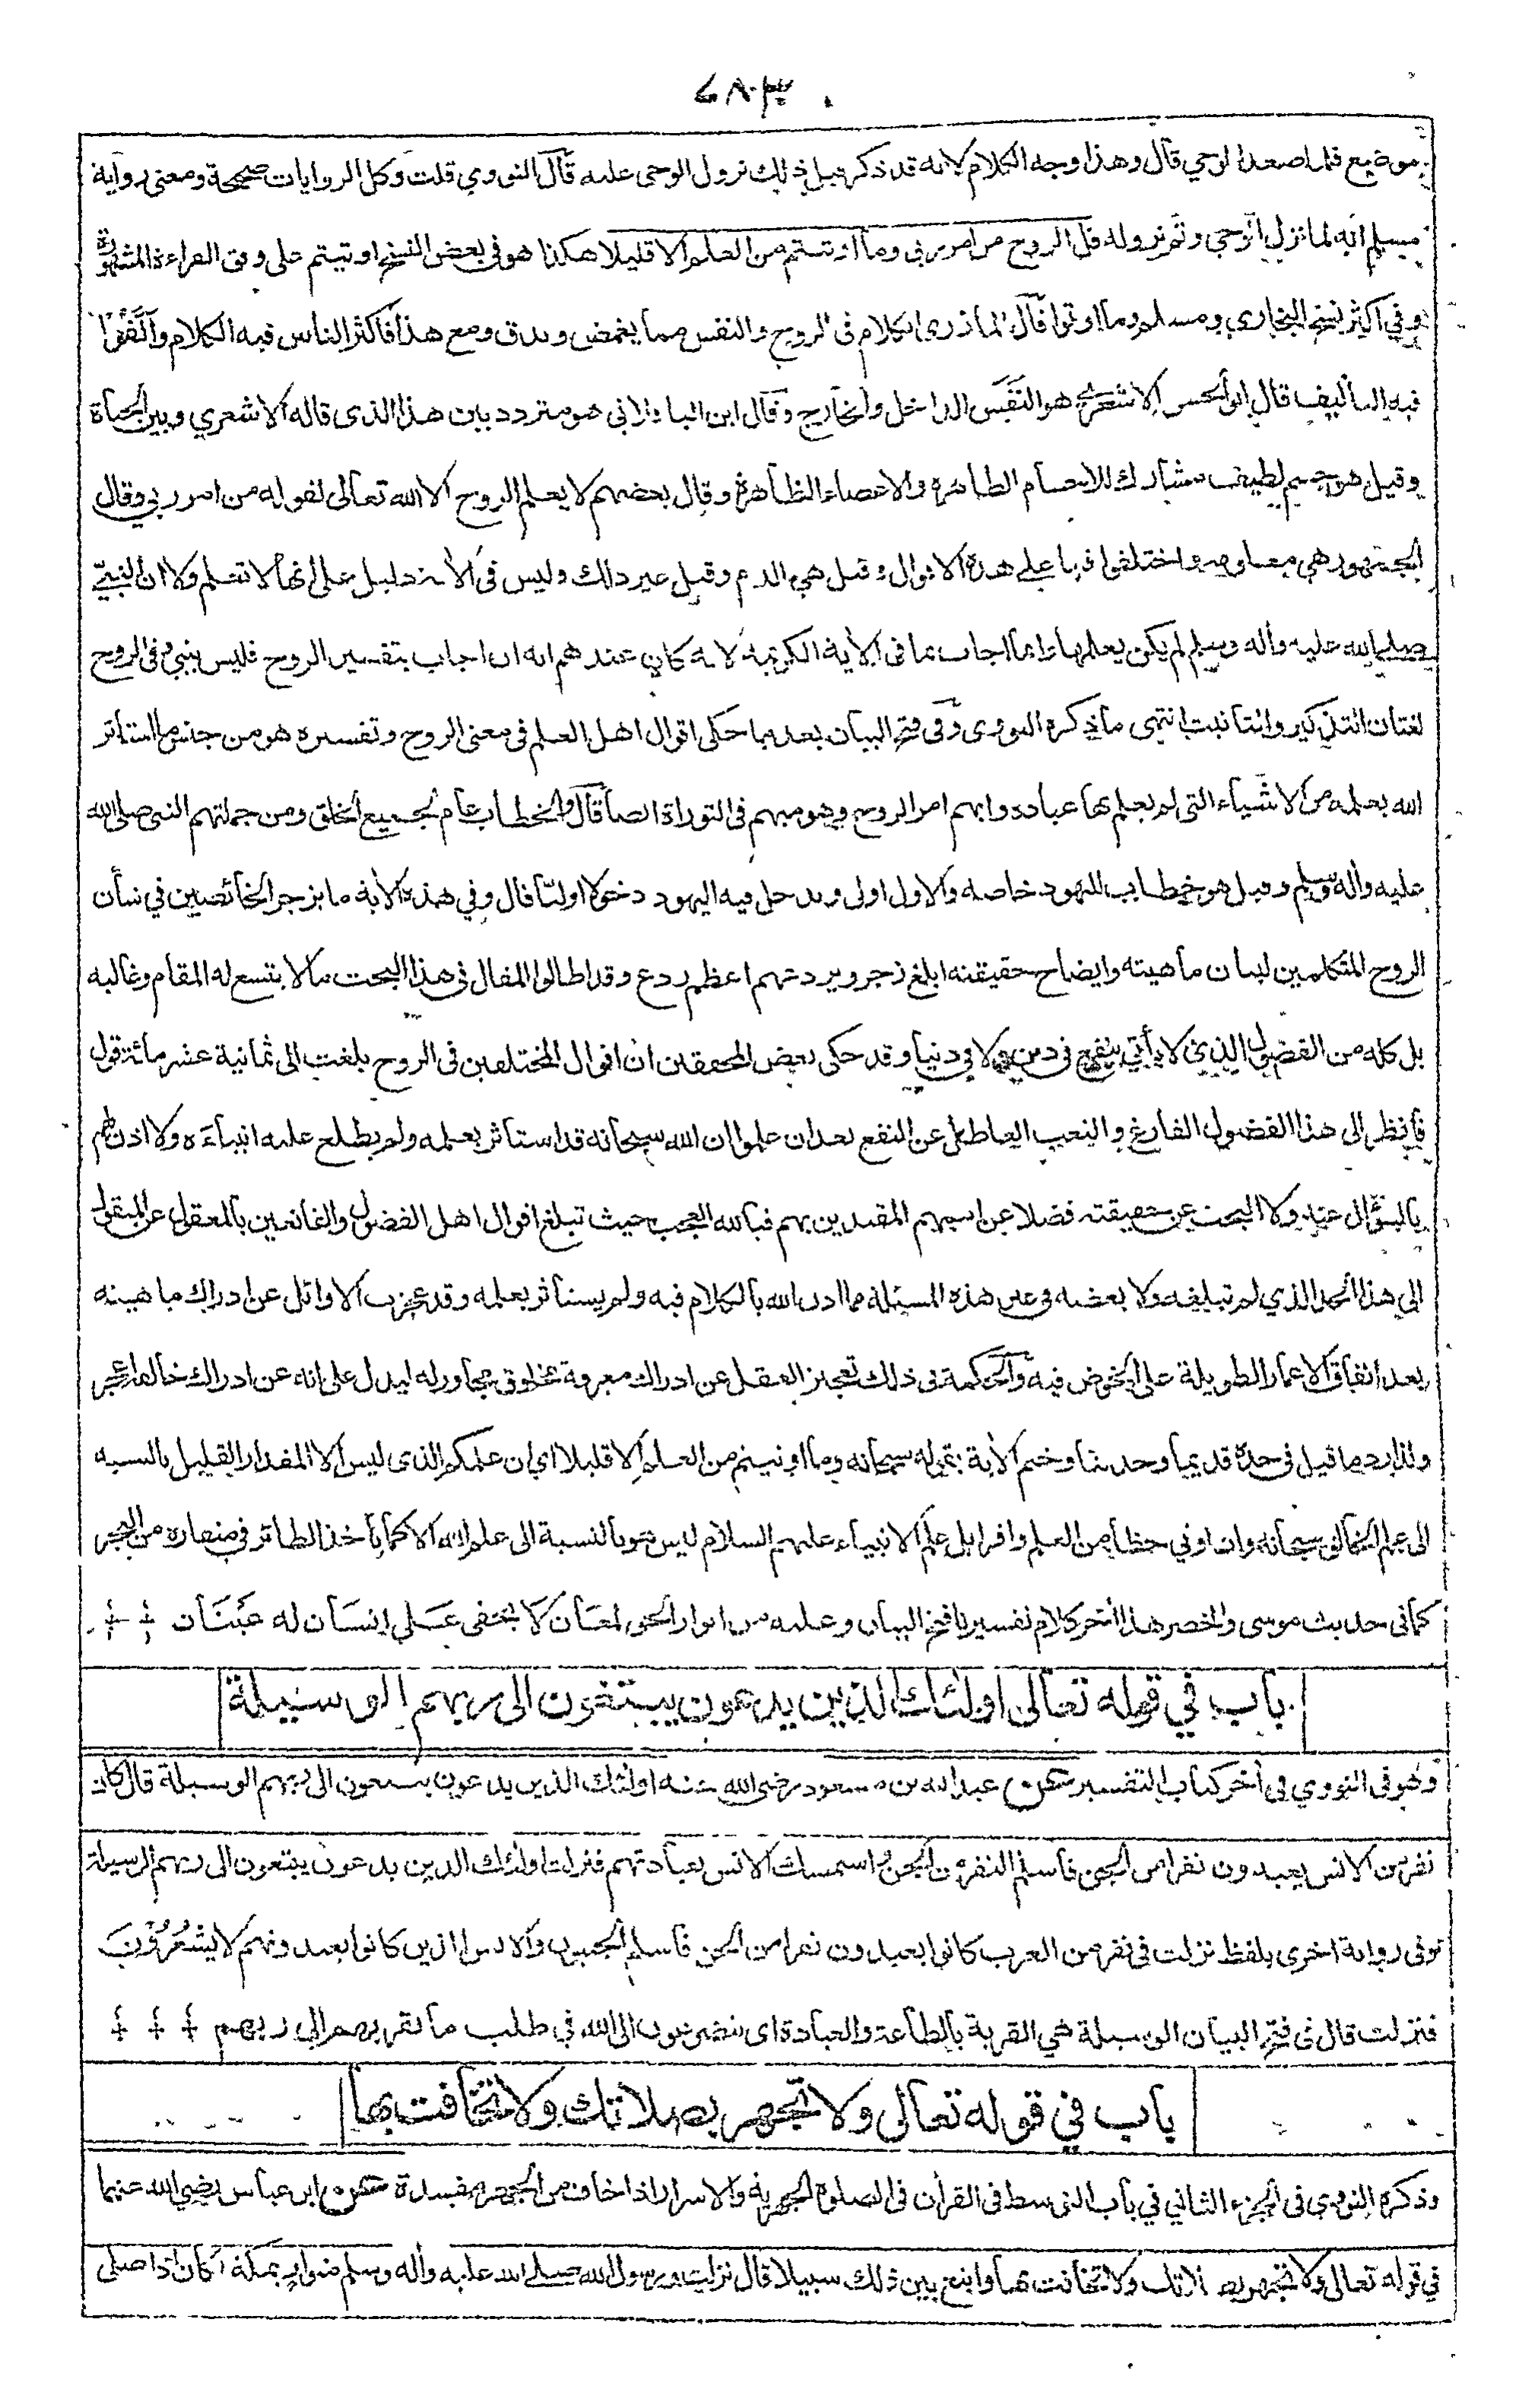 ٦٨٣
موضع فلما صعد الوحي قال وهذا وجه الكلام لانه قد ذكر قبل ذلك نزول الوحى عليه قال النووي قلت وكل الروايات صحيحة ومعنى رواية
مسلم انه لما نزل الوحي وتم نزوله قل الروح من امر ربى وما اوتيتم من العلم الا قليلا هكذا هو فى بعض النسخ اوتيتم على وفق القراءة المشهورة
وفي اكثر نسخ البخاري ومسلم وما اوتوا قال المازري الكلام فى الروح والنفس مما يغمض ويدق ومع هذا فاكثر الناس فيه الكلام والفوا
فيه التأليف قال ابو الحسن الاشعري هو النفس الداخل والخارج وقال ابن الباقلاني هو متردد بين هذا الذى قاله الاشعري وبين الحياة
وقيل هو جسم لطيف مشارك للاجسام الظاهرة والاعضاء الظاهرة وقال بعضهم لا يعلم الروح الا الله تعالى لقوله من امر ربي وقال
الجمهور هي معلومة واختلفوا فيها على هذه الاقوال وقيل هي الدم وقيل غير ذلك وليس فى الأية دليل على انها لا تعلم ولا ان النبي
صلى الله عليه وأله وسلم لم يكن يعلمها وانما اجاب بما فى الأية الكريمة لانه كان عندهم انه ان اجاب بتفسير الروح فليس بنبي وفى الروح
لغتان التذكير والتانيث انتهى ما ذكره النووى وفى فتح البيان بعد ما حكى اقوال اهل العلم فى معنى الروح وتفسيره هو من جنس ما استأثر
الله بعلمه من الاشياء التى لم يعلم بها عباده وابهم امر الروح وهو مبهم فى التوراة ايضا قال والخطاب عام لجميع الخلق ومن جملتهم النبى صلى الله
عليه وأله وسلم وقيل هو خطاب لليهود خاصة والاول اولى ويدخل فيه اليهود دخولا اوليا قال وفي هذه الأية ما يزجر الخائضين في شأن
الروح المتكلمين لبيان ماهيته وايضاح حقيقته ابلغ زجر ويردعهم اعظم ردع وقد اطالوا المقال فى هذا البحث ما لا يتسع له المقام وغالبه
بل كله من الفضول الذي لا يأتي بنفع فى دين ولا فى دنيا وقد حكى بعض المحققين ان اقوال المختلفين فى الروح بلغت الى ثمانية عشر مائة قول
فانظر الى هذا الفضول الفارغ والتعب العاطل عن النفع بعد ان علموا ان الله سبحانه قد استأثر بعلمه ولم يطلع عليه انبياءه ولا اذن لهم
بالسؤال عنه ولا البحث عن حقيقته فضلا عن اممهم المقتدين بهم فيا لله العجب حيث تبلغ اقوال اهل الفضول والقانعين بالمعقول عن المنقول
الى هذا الحد الذي لم تبلغه ولا بعضه فى غير هذه المسئلة مما اذن الله بالكلام فيه ولم يستأثر بعلمه وقد عجزت الاوائل عن ادراك ماهيته
بعد انفاق الاعمار الطويلة على الخوض فيه والحكمة فى ذلك تعجيز العقل عن ادراك معرفة مخلوق مجاور له ليدل على انه عن ادراك خالقه اعجز
ولذا رد ما قيل فى حده قديما وحديثا وختم الأية بقوله سبحانه وما اوتيتم من العلم الا قليلا اي ان علمكم الذى ليس الا المقدار القليل بالنسبة
الى علم الخالق سبحانه وان اوتي حظا من العلم وافرا بل علم الانبياء عليهم السلام ليس هو بالنسبة الى علم الله الا كما يأخذ الطائر في منقاره من البحر
كما فى حديث موسى والخضر هذا أخر كلام تفسيرنا فتح البيان وعليه من انوار الحق لمعان لا يخفى على انسان له عينان
باب في قوله تعالى اولئك الذين يدعون يبتغون الى ربهم الوسيلة
وهو فى النووي في أخر كتاب التفسير عن عبد الله بن مسعود رضى الله عنه اولئك الذين يدعون يبتغون الى ربهم الوسيلة قال كان
نفر من الانس يعبدون نفرا من الجن فاسلم النفر من الجن واستمسك الانس بعبادتهم فنزلت اولئك الذين يدعون يبتغون الى ربهم الوسيلة
وفى رواية اخرى بلفظ نزلت فى نفر من العرب كانوا يعبدون نفرا من الجن فاسلم الجنيون والانس الذين كانوا يعبدونهم لا يشعرون
فنزلت قال فى فتح البيان الوسيلة هي القربة بالطاعة والعبادة اى يتضرعون الى الله في طلب ما يقربهم الى ربهم
باب في قوله تعالى ولا تجهر بصلاتك ولا تخافت بها
وذكره النووي فى الجزء الثاني في باب التوسط فى القرأن فى الصلوة الجهرية والاسرار اذا خاف من الجهر مفسدة عن ابن عباس رضي الله عنهما
في قوله تعالى ولا تجهر بصلاتك ولا تخافت بها وابتغ بين ذلك سبيلا قال نزلت ورسول الله صلى الله عليه وأله وسلم متوار بمكة كان اذا صلى